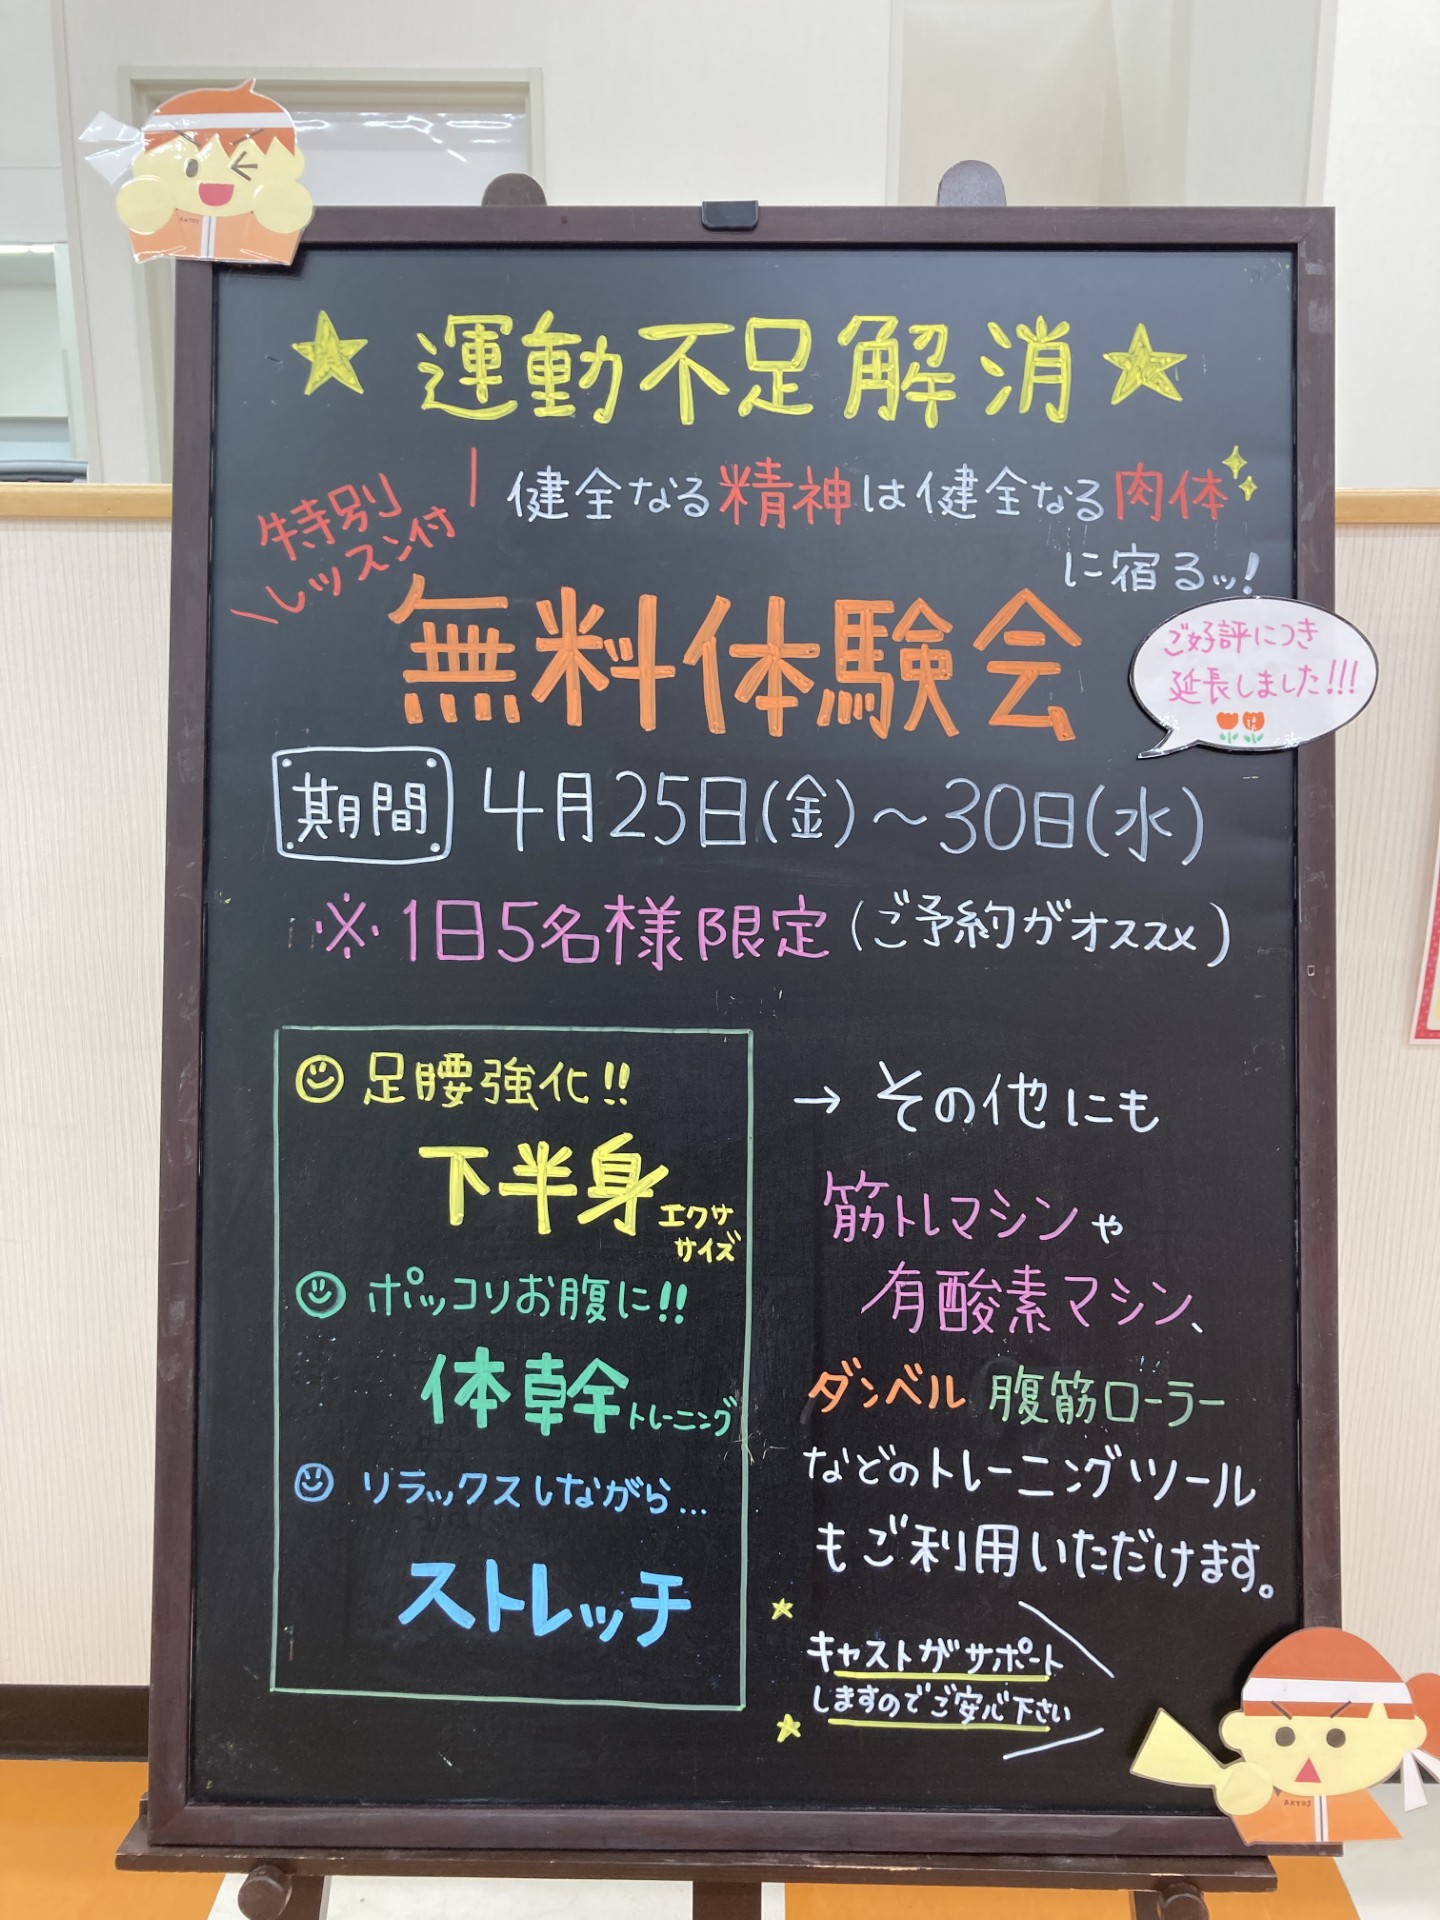 ★運動不足解消★
特別
レッスン付
健全なる精神は健全なる肉体
に宿るッ!
無料体験会
ご好評につき
延長しました!!!
期間 4月25日(金)～30日(水)
※1日5名様限定(ご予約がオススメ)
足腰強化!!
下半身エクサ
サイズ
ポッコリお腹に!!
体幹トレーニング
リラックスしながら...
ストレッチ
→その他にも
筋トレマシンや
有酸素マシン、
ダンベル 腹筋ローラー
などのトレーニングツール
もご利用いただけます。
キャストがサポート
しますのでご安心下さい